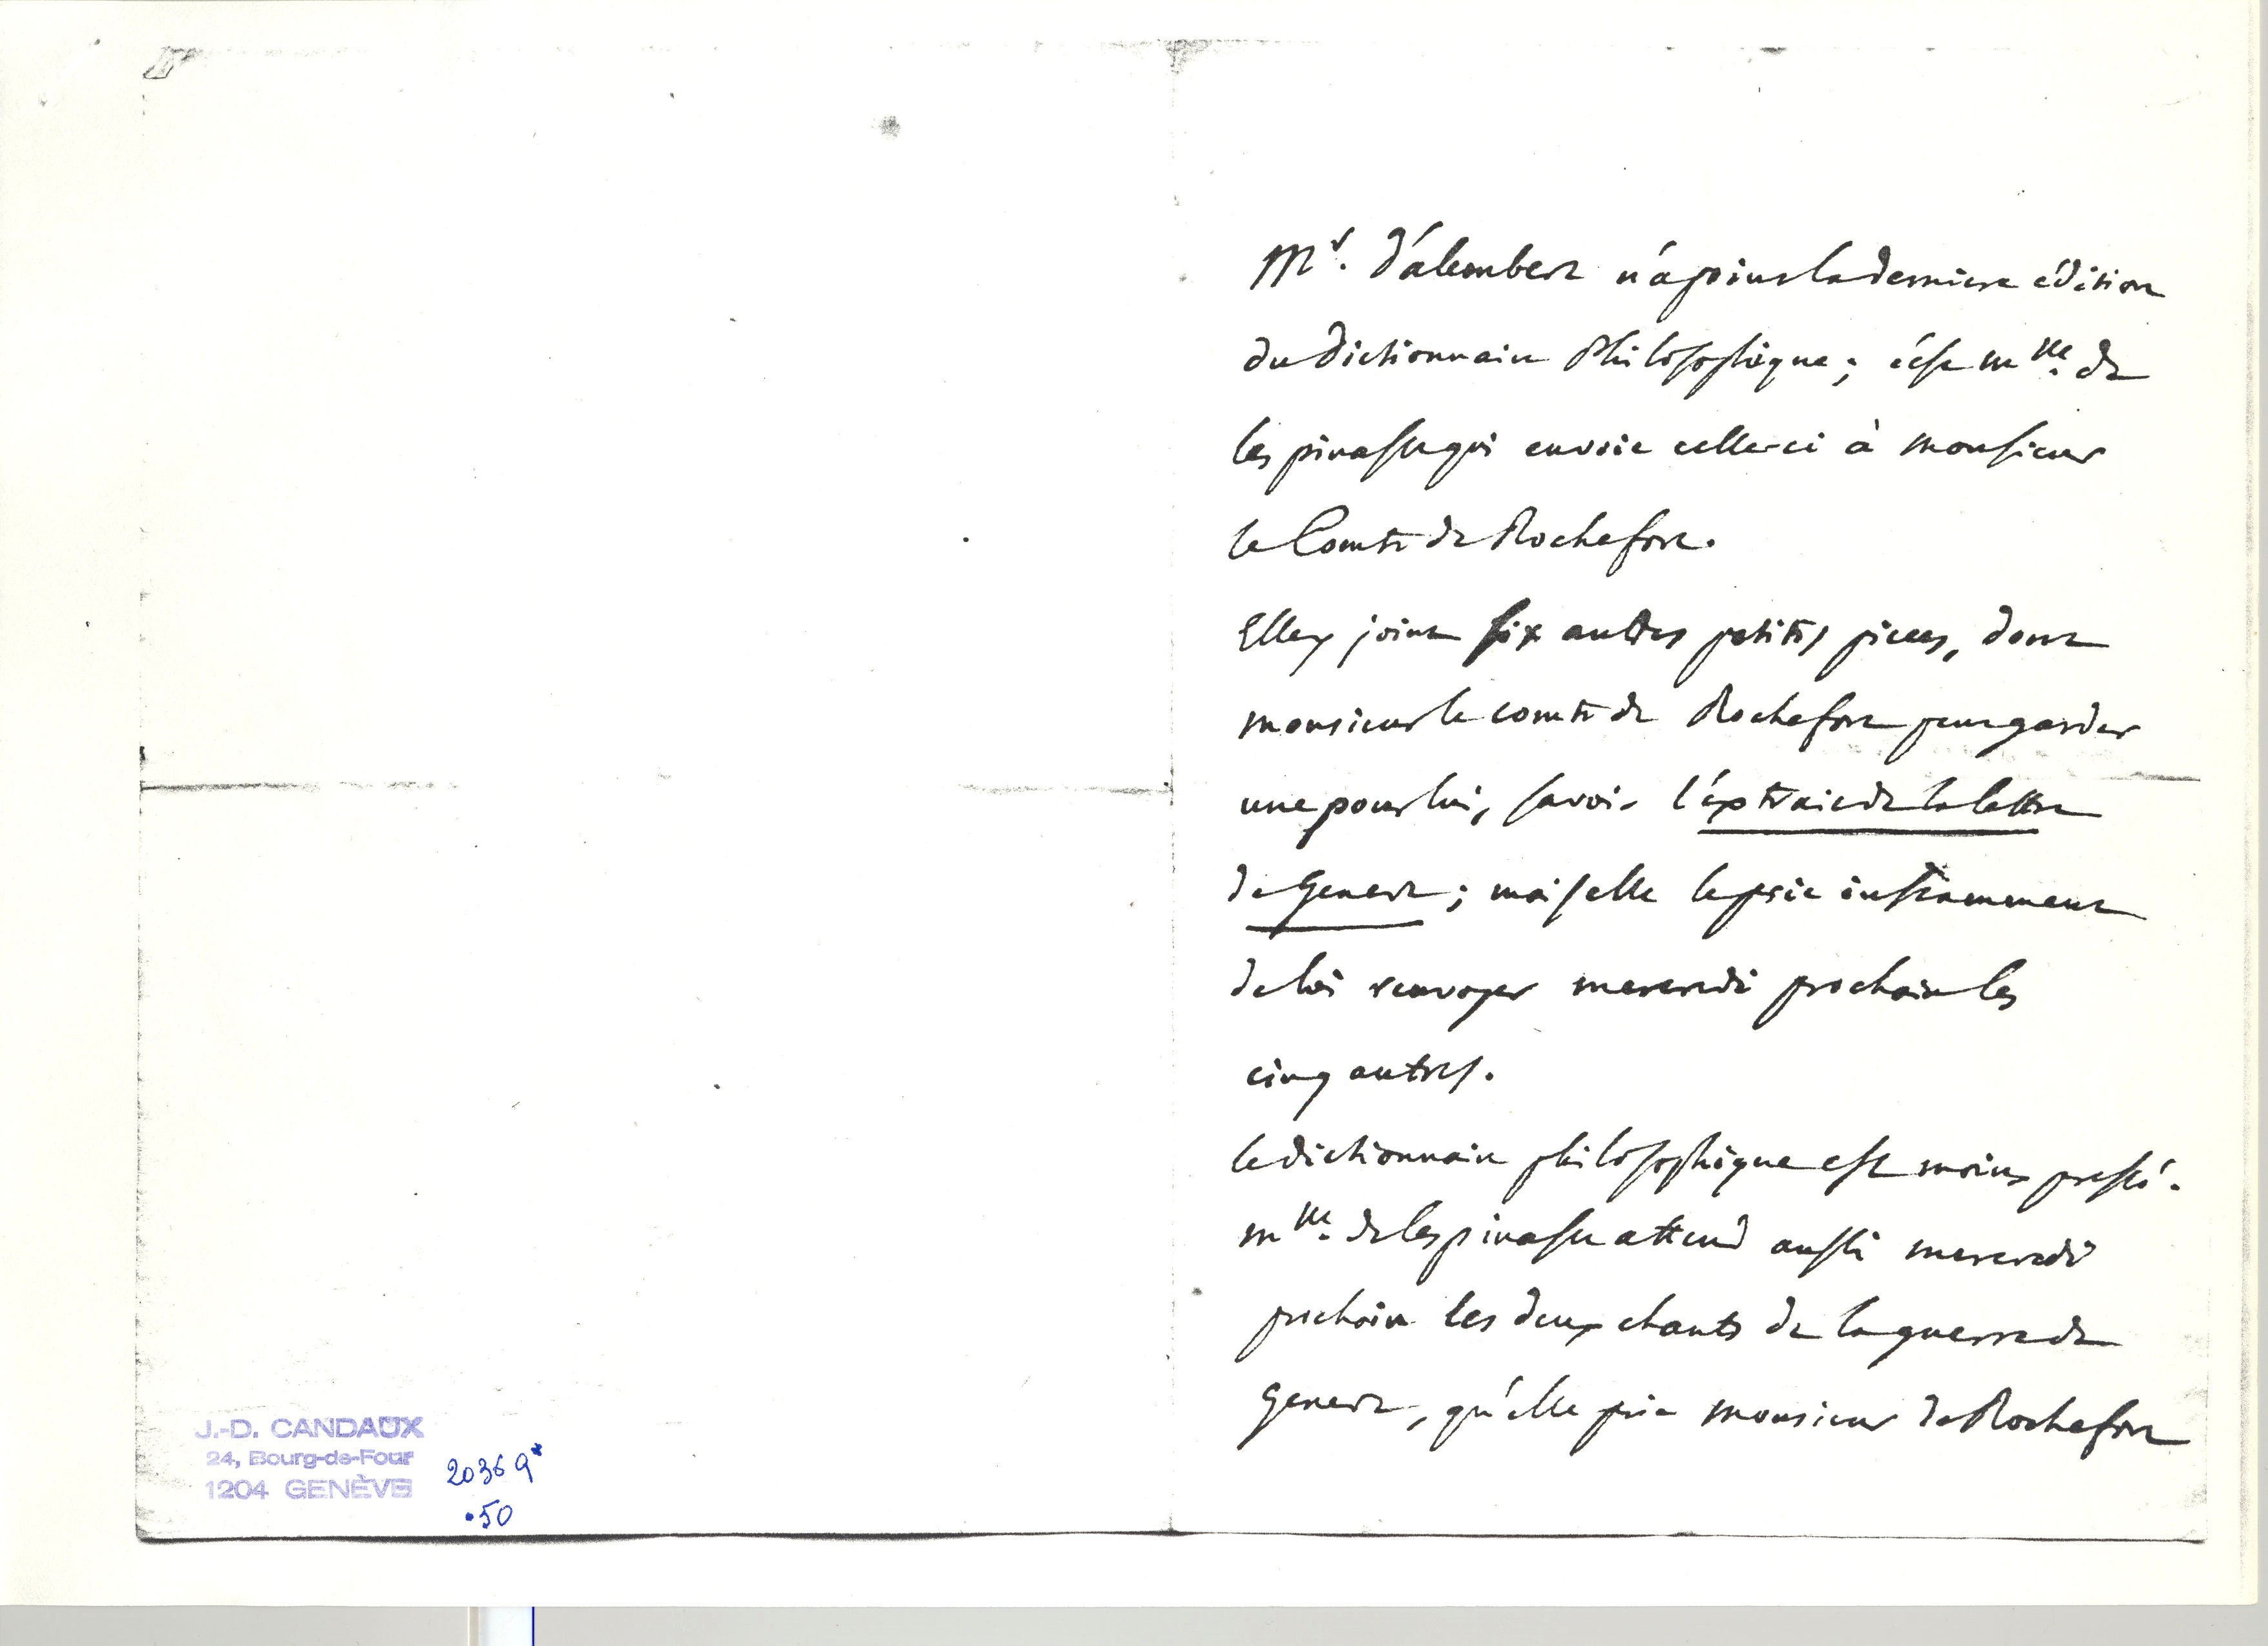 Mr. d'alembert n'a point la derniere édition
du dictionnaire Philosophique; c'est mlle. de
lespinasse qui envoie celle-ci à monsieur
le Comte de Rochefort.
Elle y joint six autres petites pieces, dont
monsieur le comte de Rochefort peut garder
une pour lui, savoir l'extrait de la lettre
de Geneve; mais elle le prie instamment
de lui renvoyer mercredi prochain les
cinq autres.
le dictionnaire philosophique est moins pressé.
mlle. de lespinasse attend aussi mercredi
prochain les deux chants de la guerre de
Geneve, qu'elle prie monsieur de Rochefort
J.-D. CANDAUX
24, Bourg-de-Four
1204 GENÈVE
20369*
.50